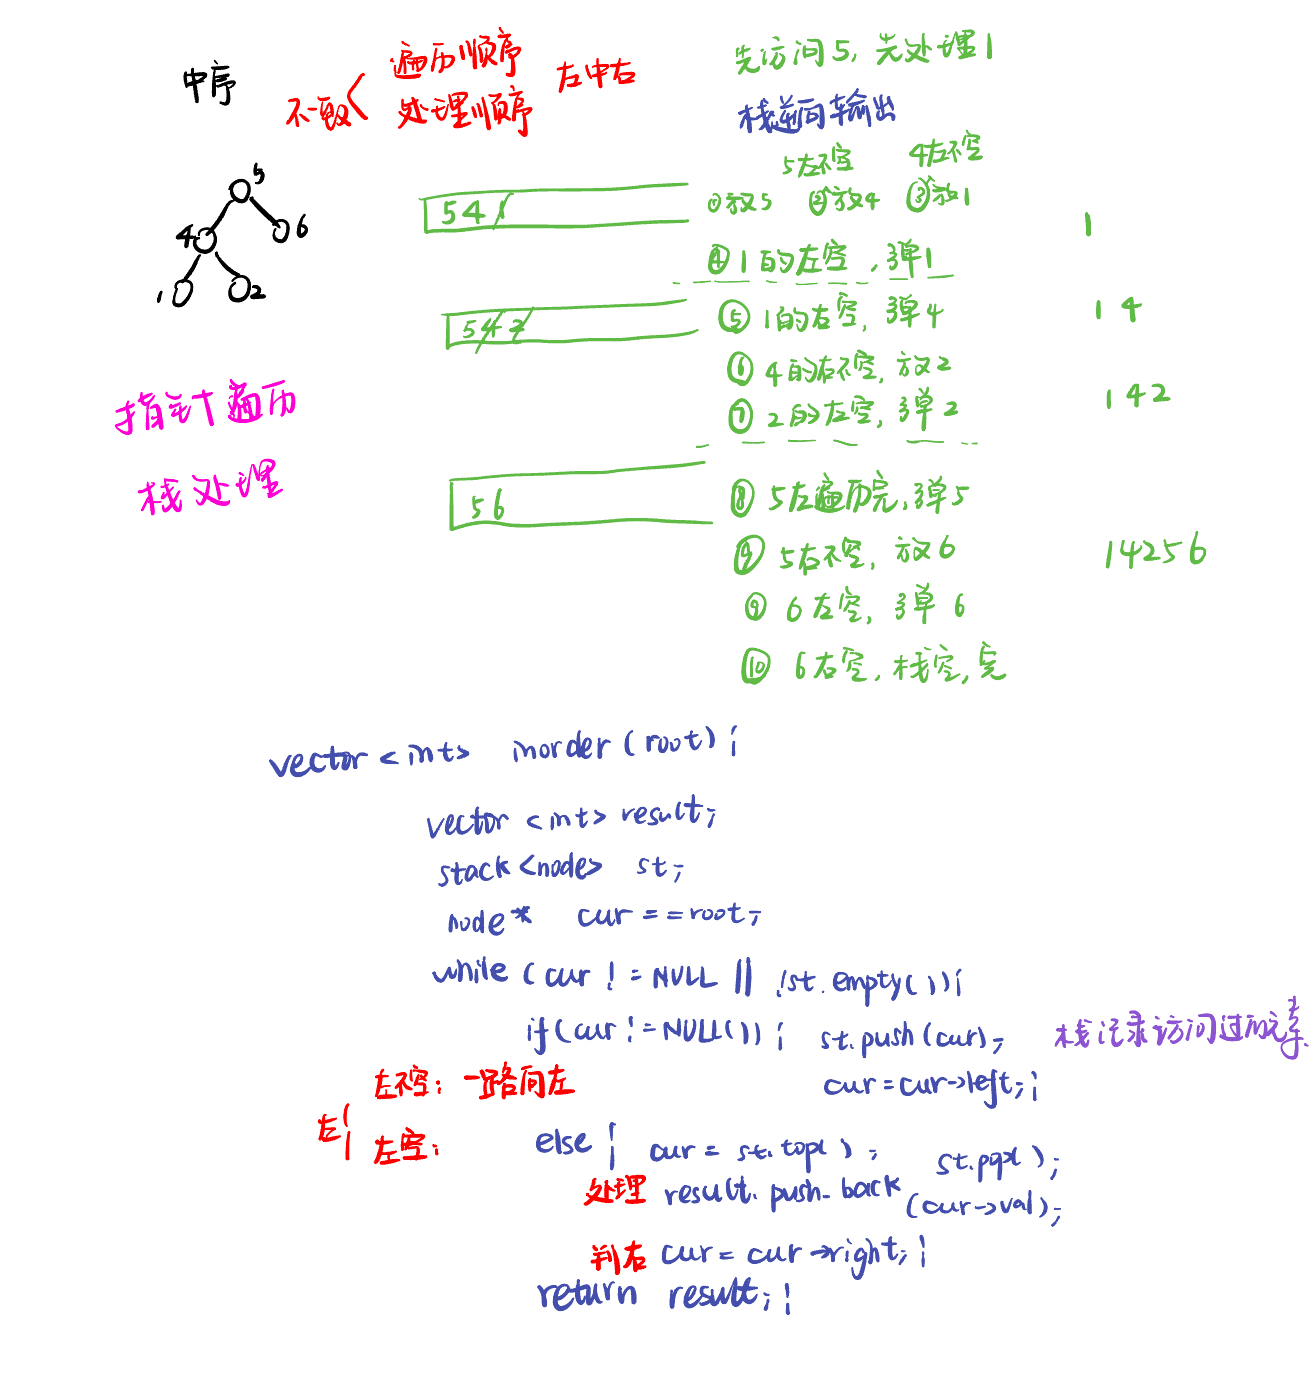 中序
不一致
遍历顺序
处理顺序
左中右
先访问5, 先处理1
栈逆向输出
5
4
6
1
2
5左不空 4左不空
5 4 1
①放5 ②放4 ③放1
1
④1的左空, 弹1
5 4 2
⑤1的右空, 弹4
1 4
⑥4的右不空, 放2
⑦2的左空, 弹2
1 4 2
指针遍历
栈处理
5 6
⑧5左遍历完, 弹5
⑨5右不空, 放6
14256
⑨6左空, 弹6
⑩6右空, 栈空, 完
vector <int> inorder (root) {
vector <int> result;
stack <node> st;
node* cur == root;
while (cur != NULL || !st.empty()){
if (cur != NULL()) { st.push(cur);
栈记录访问过的元素.
cur = cur->left; }
左{
左不空: 一路向左
左空:
else { cur = st.top(); st.pop();
处理 result.push_back (cur->val);
判右 cur = cur->right; }
return result; }